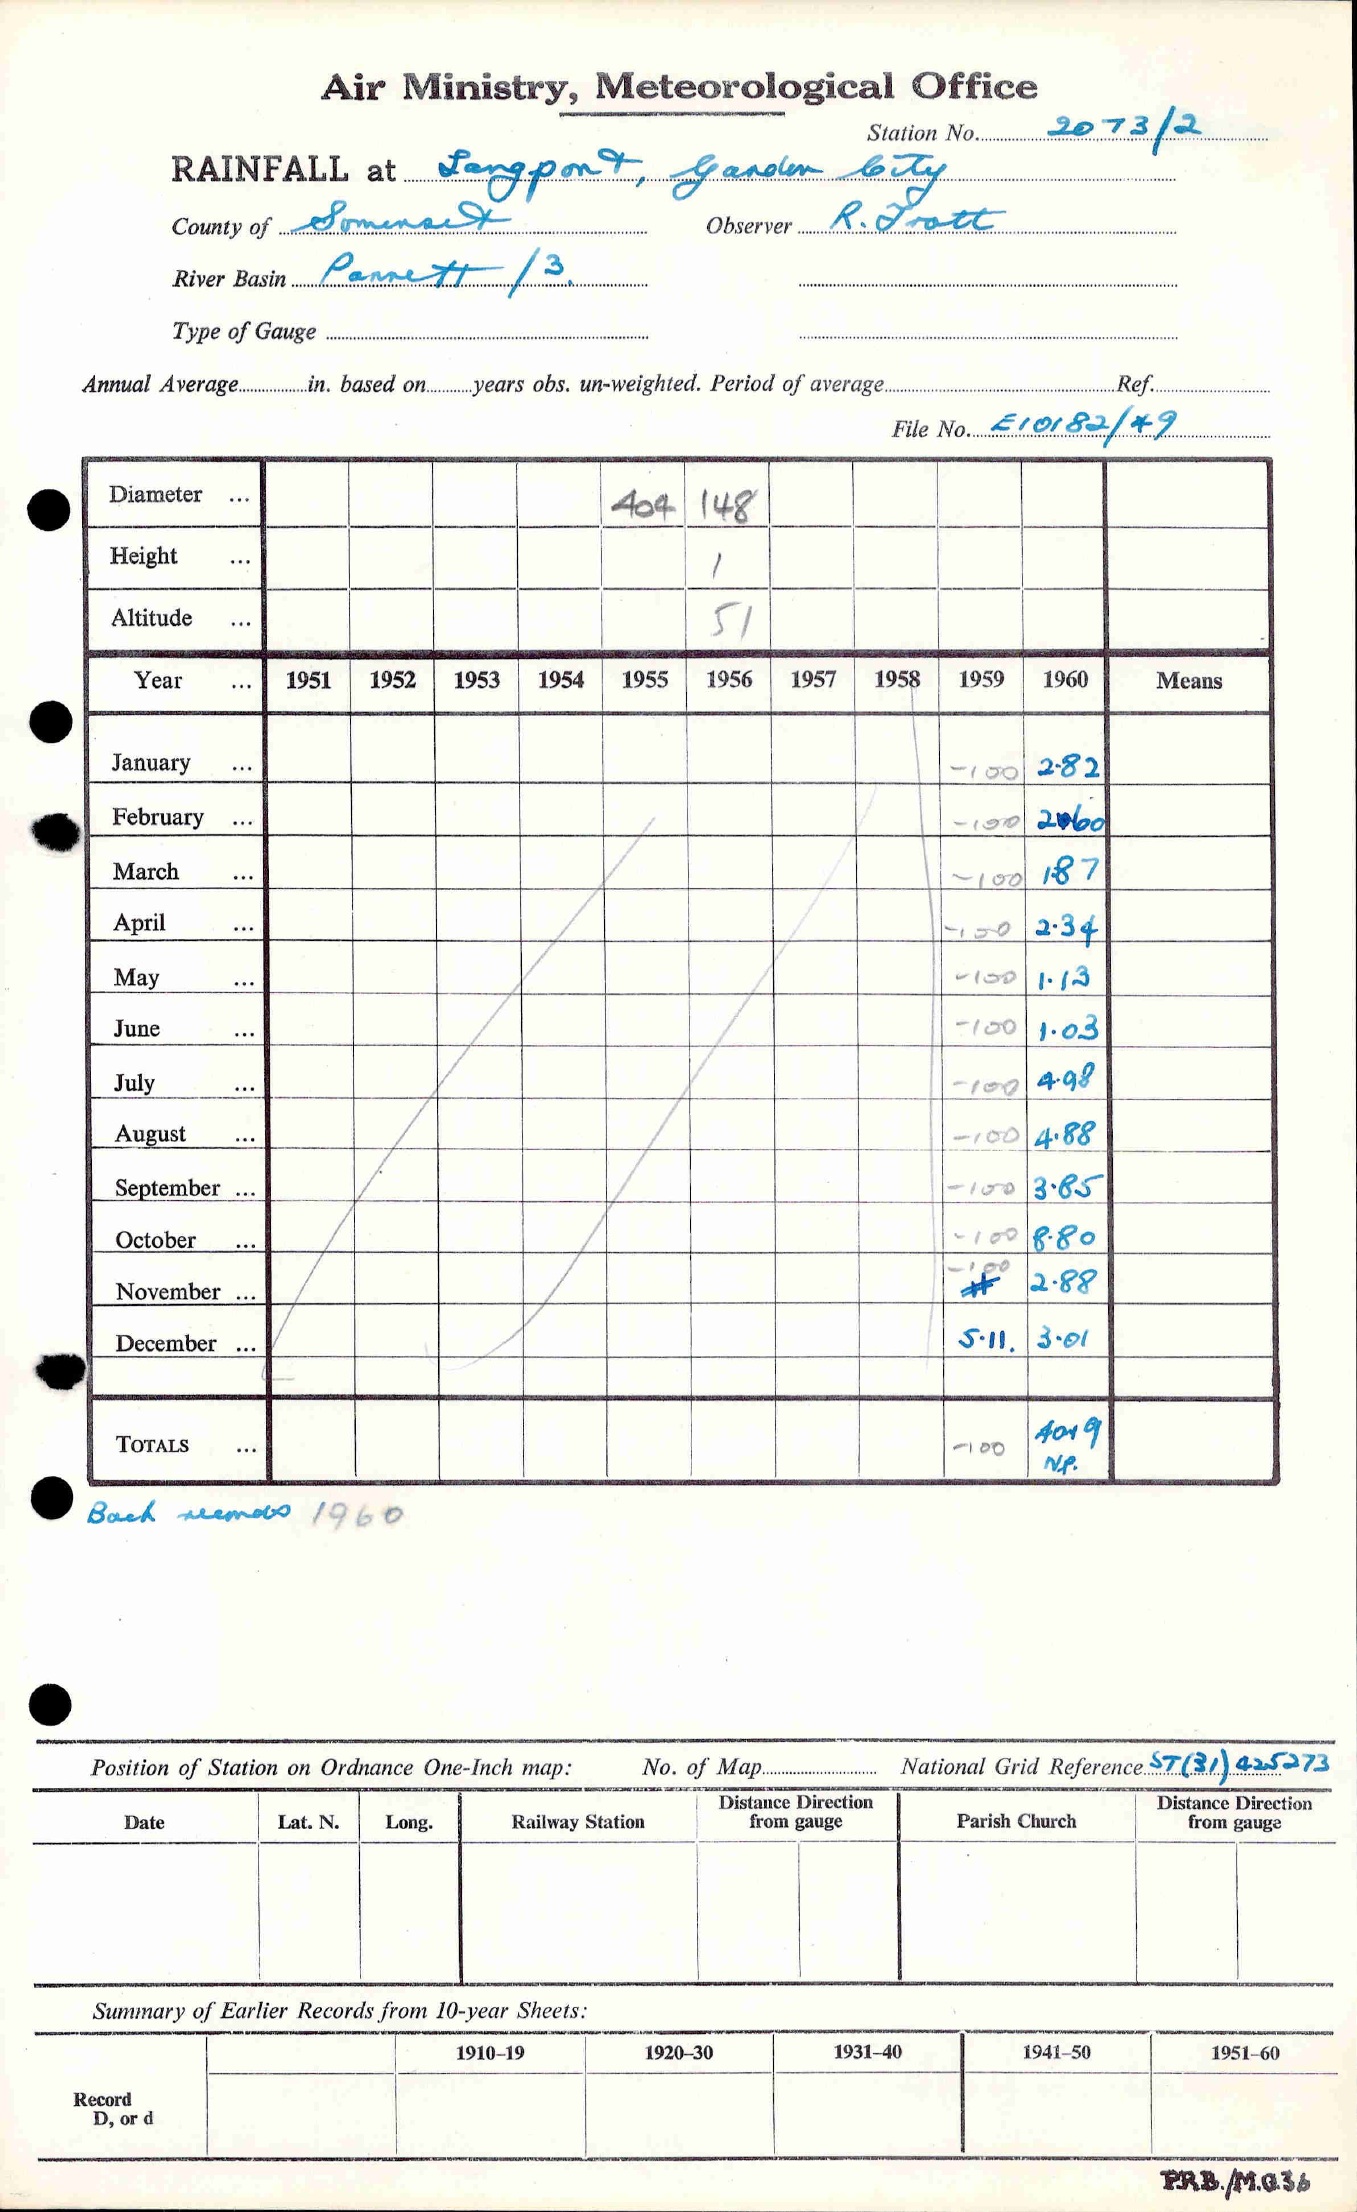 Air Ministry, Meteorological Office
Station No. 2073/2
RAINFALL at Langport, Garden City
County of Somerset Observer R. Trott
River Basin Parrett /3.
Type of Gauge
Annual Average in. based on years obs. un-weighted. Period of average Ref.
File No. E10182/49
Diameter ... 404 148
Height ... 1
Altitude ... 51
Year ... 1951 1952 1953 1954 1955 1956 1957 1958 1959 1960 Means
January ... -100 2.82
February ... -100 2.60
March ... -100 1.87
April ... -100 2.34
May ... -100 1.13
June ... -100 1.03
July ... -100 4.98
August ... -100 4.88
September ... -100 3.85
October ... -100 8.80
November ... -100 # 2.88
December ... 5.11. 3.01
TOTALS ... -100 40.19
N.P.
Back records 1960
Position of Station on Ordnance One-Inch map: No. of Map National Grid Reference ST(31)425273
Date Lat. N. Long. Railway Station Distance Direction from gauge Parish Church Distance Direction from gauge
Summary of Earlier Records from 10-year Sheets:
1910–19 1920–30 1931–40 1941–50 1951–60
Record
D, or d
P.R.B./M.O.36